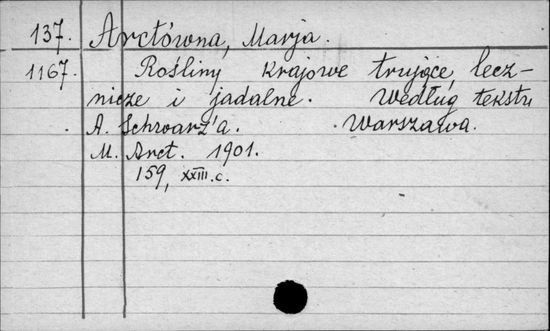 137. Arctówna, Marja.
1167. Rośliny krajowe trujące, lecz-
nicze i jadalne. Według tekstu
A. Schwarz'a. Warszawa.
M. Arct. 1901.
159, XXIII.c.